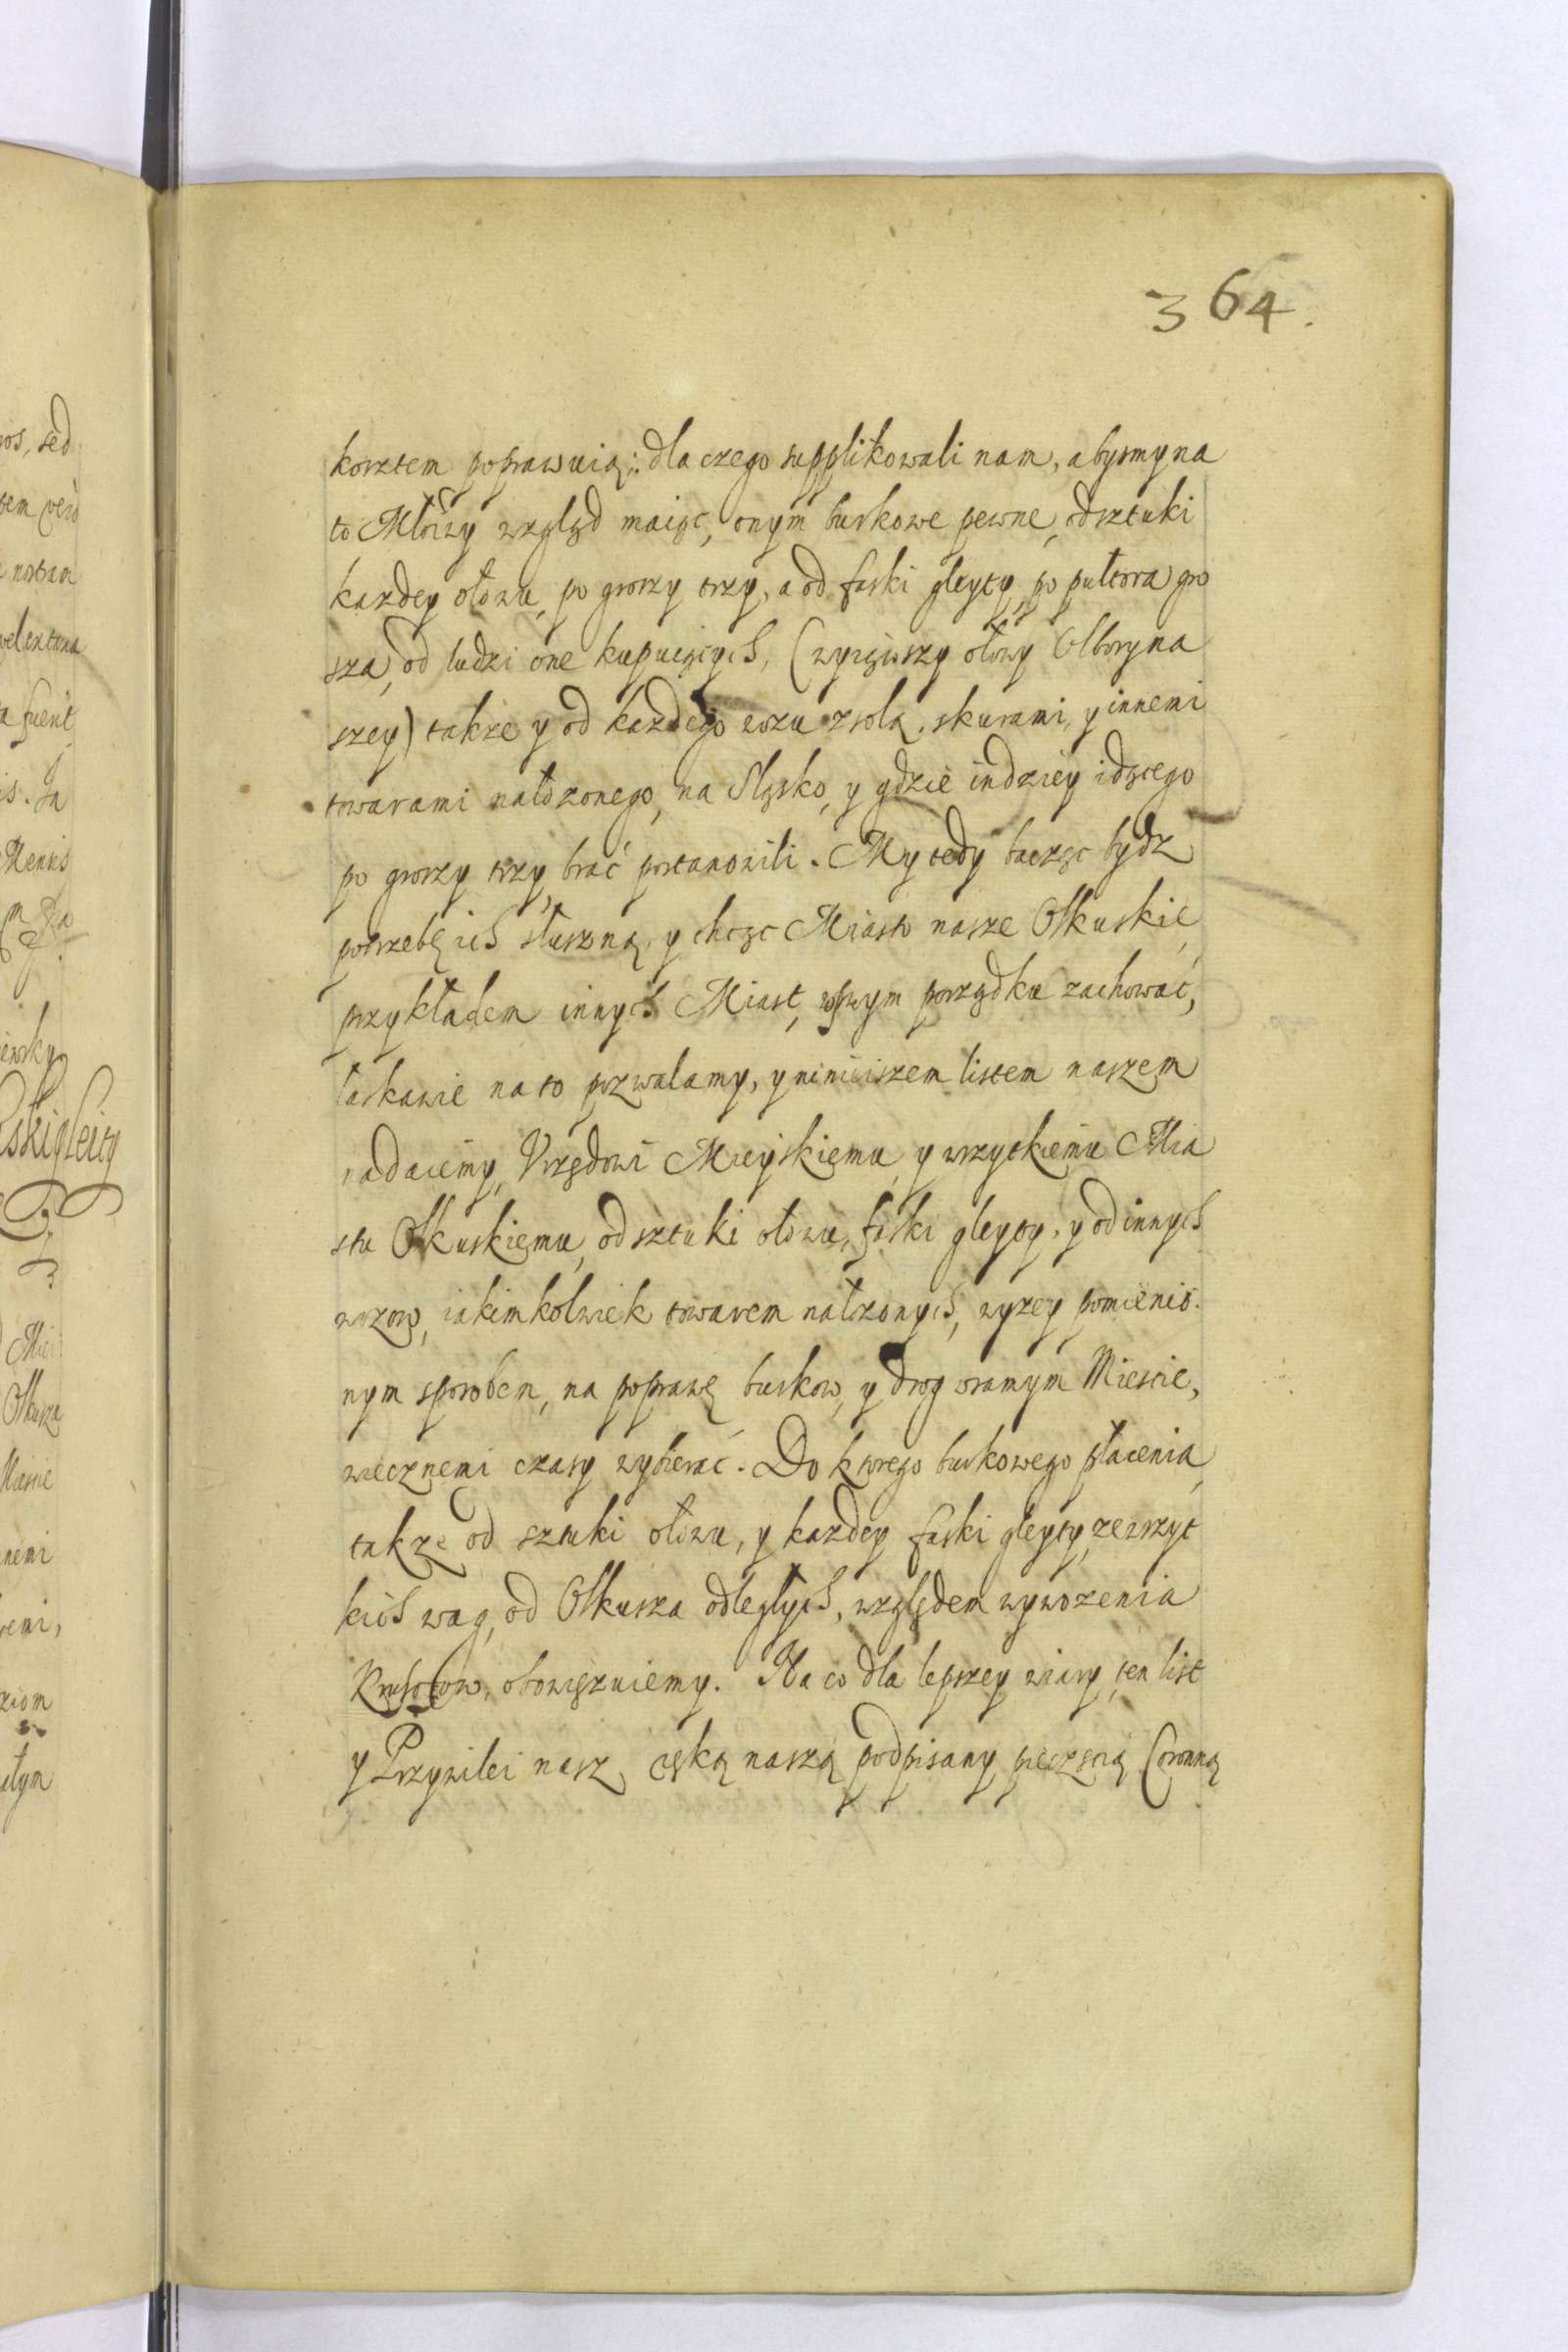 364.
kosztem poprawuią: dla czego supplikowali nam, abysmy na
to Młościwy wzgląd maiąc, onym burkowe pewne, od sztuki
kazdey ołowu, po groszy trzy, a od faski gleyty, po pułtora gro
sza, od ludzi one kupuiących, (wyiąwszy ołowy Olbory na
szey) także y od kazdego wozu zsolą, skurami, y innemi
towarami nałożonego, na Sląsko, y gdzie indziey idącego
po groszy trzy, brać postanowili. My tedy bacząc bydz
potrzebę ich słuszną, y chcąc Miasto nasze Olkuskie,
przykładem innych Miast, wswym porządku zachować,
łaskawie na to pozwalamy, y ninieiszem listem naszem
nadaiemy, Vrzędowi Mieyskiemu, y wszytkiemu Mia
stu Olkuskiemu, od sztuki ołowu, faski gleyty, y od innych
wozow, iakimkolwiek towarem nałożonych, wyzey pomienio
nym sposobem, na poprawę burkow, y drog wsamym Miescie,
wiecznemi czasy wybierać. Do ktorego burkowego płacenia,
takze od sztuki ołowu, y kazdey faski gleyty, ze wszyt
kich wag, od Olkusza odległych, względem wywozenia
Kruszcow, obowięzuiemy. Na co dla lepszey wiary, ten list
y Przywilei nasz, ręką naszą podpisany pieczęcią Coronną
os, sed
nostram
fuerit
Mensis
Olkusza
Miescie